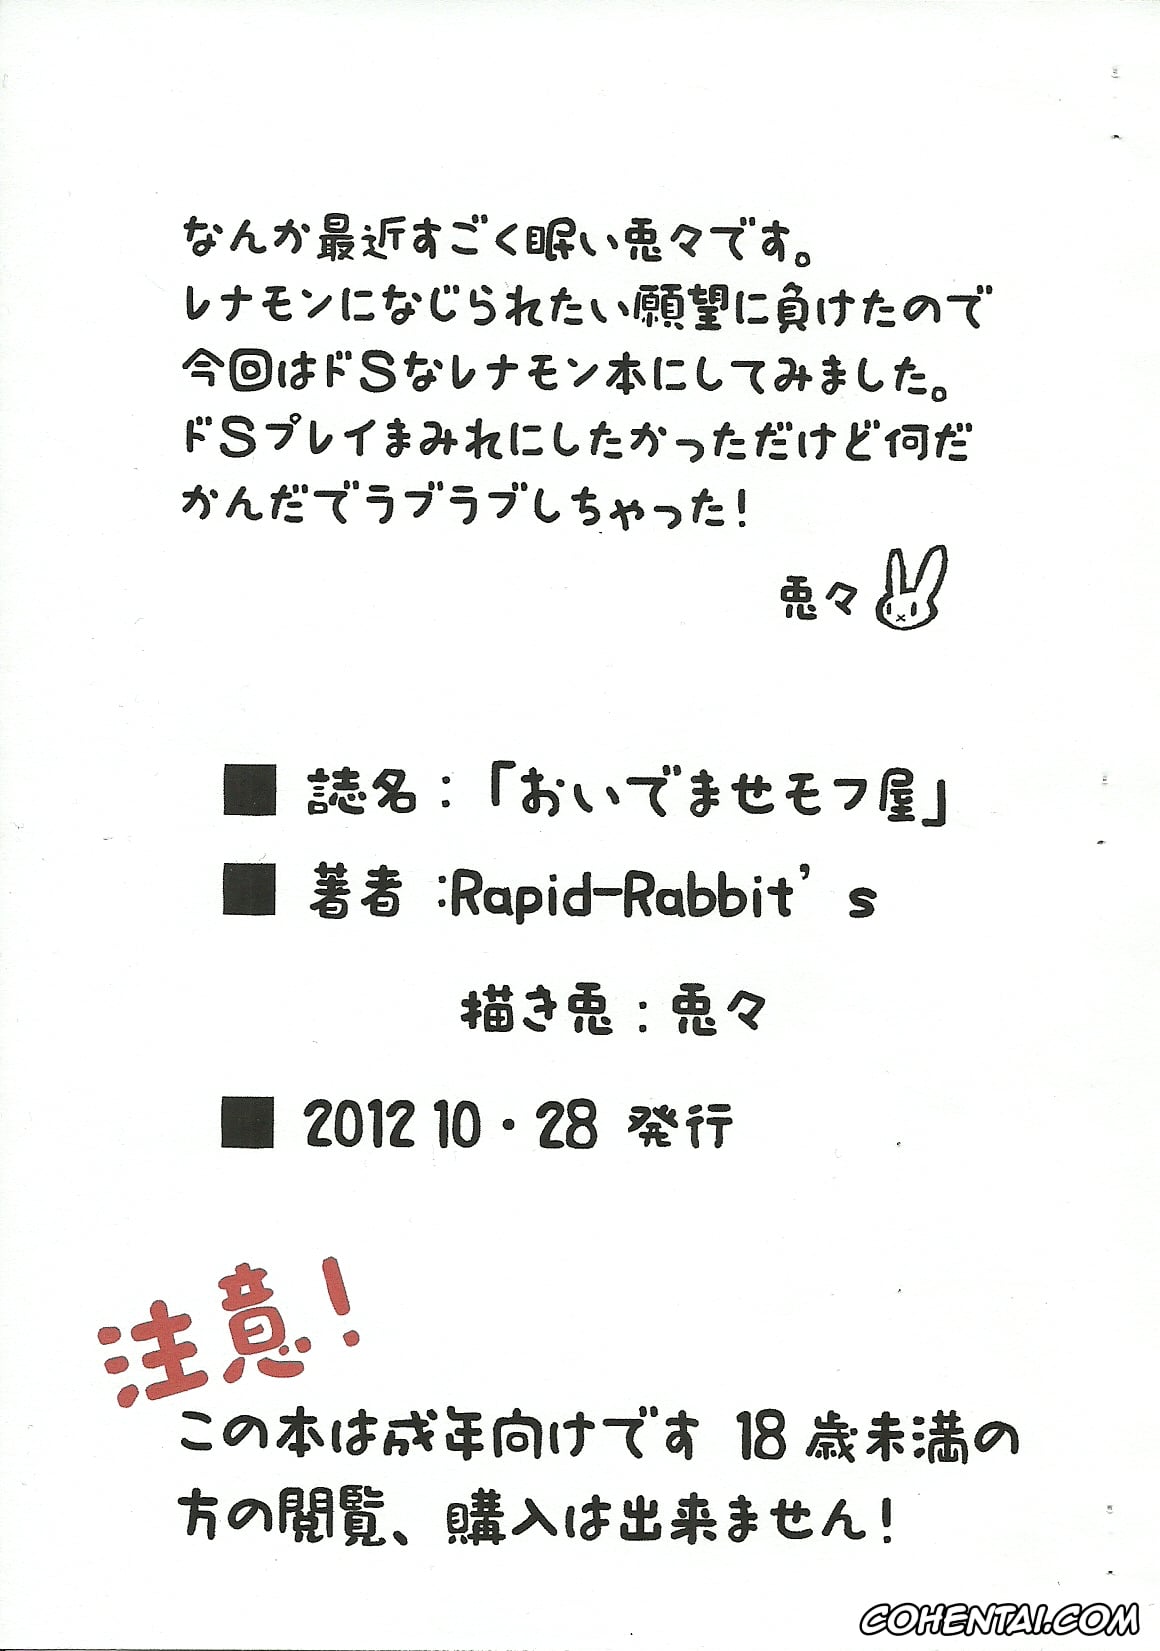 なんか最近すごく眠い兎々です。
レナモンになじられたい願望に負けたので
今回はドSなレナモン本にしてみました。
ドSプレイまみれにしたかっただけど何だ
かんだでラブラブしちゃった!
兎々
■ 誌名:「おいでませモフ屋」
■ 著者 :Rapid-Rabbit's
描き兎:兎々
■ 2012 10・28 発行
注意!
この本は成年向けです 18歳未満の
方の閲覧、購入は出来ません!
COHENTAI.COM